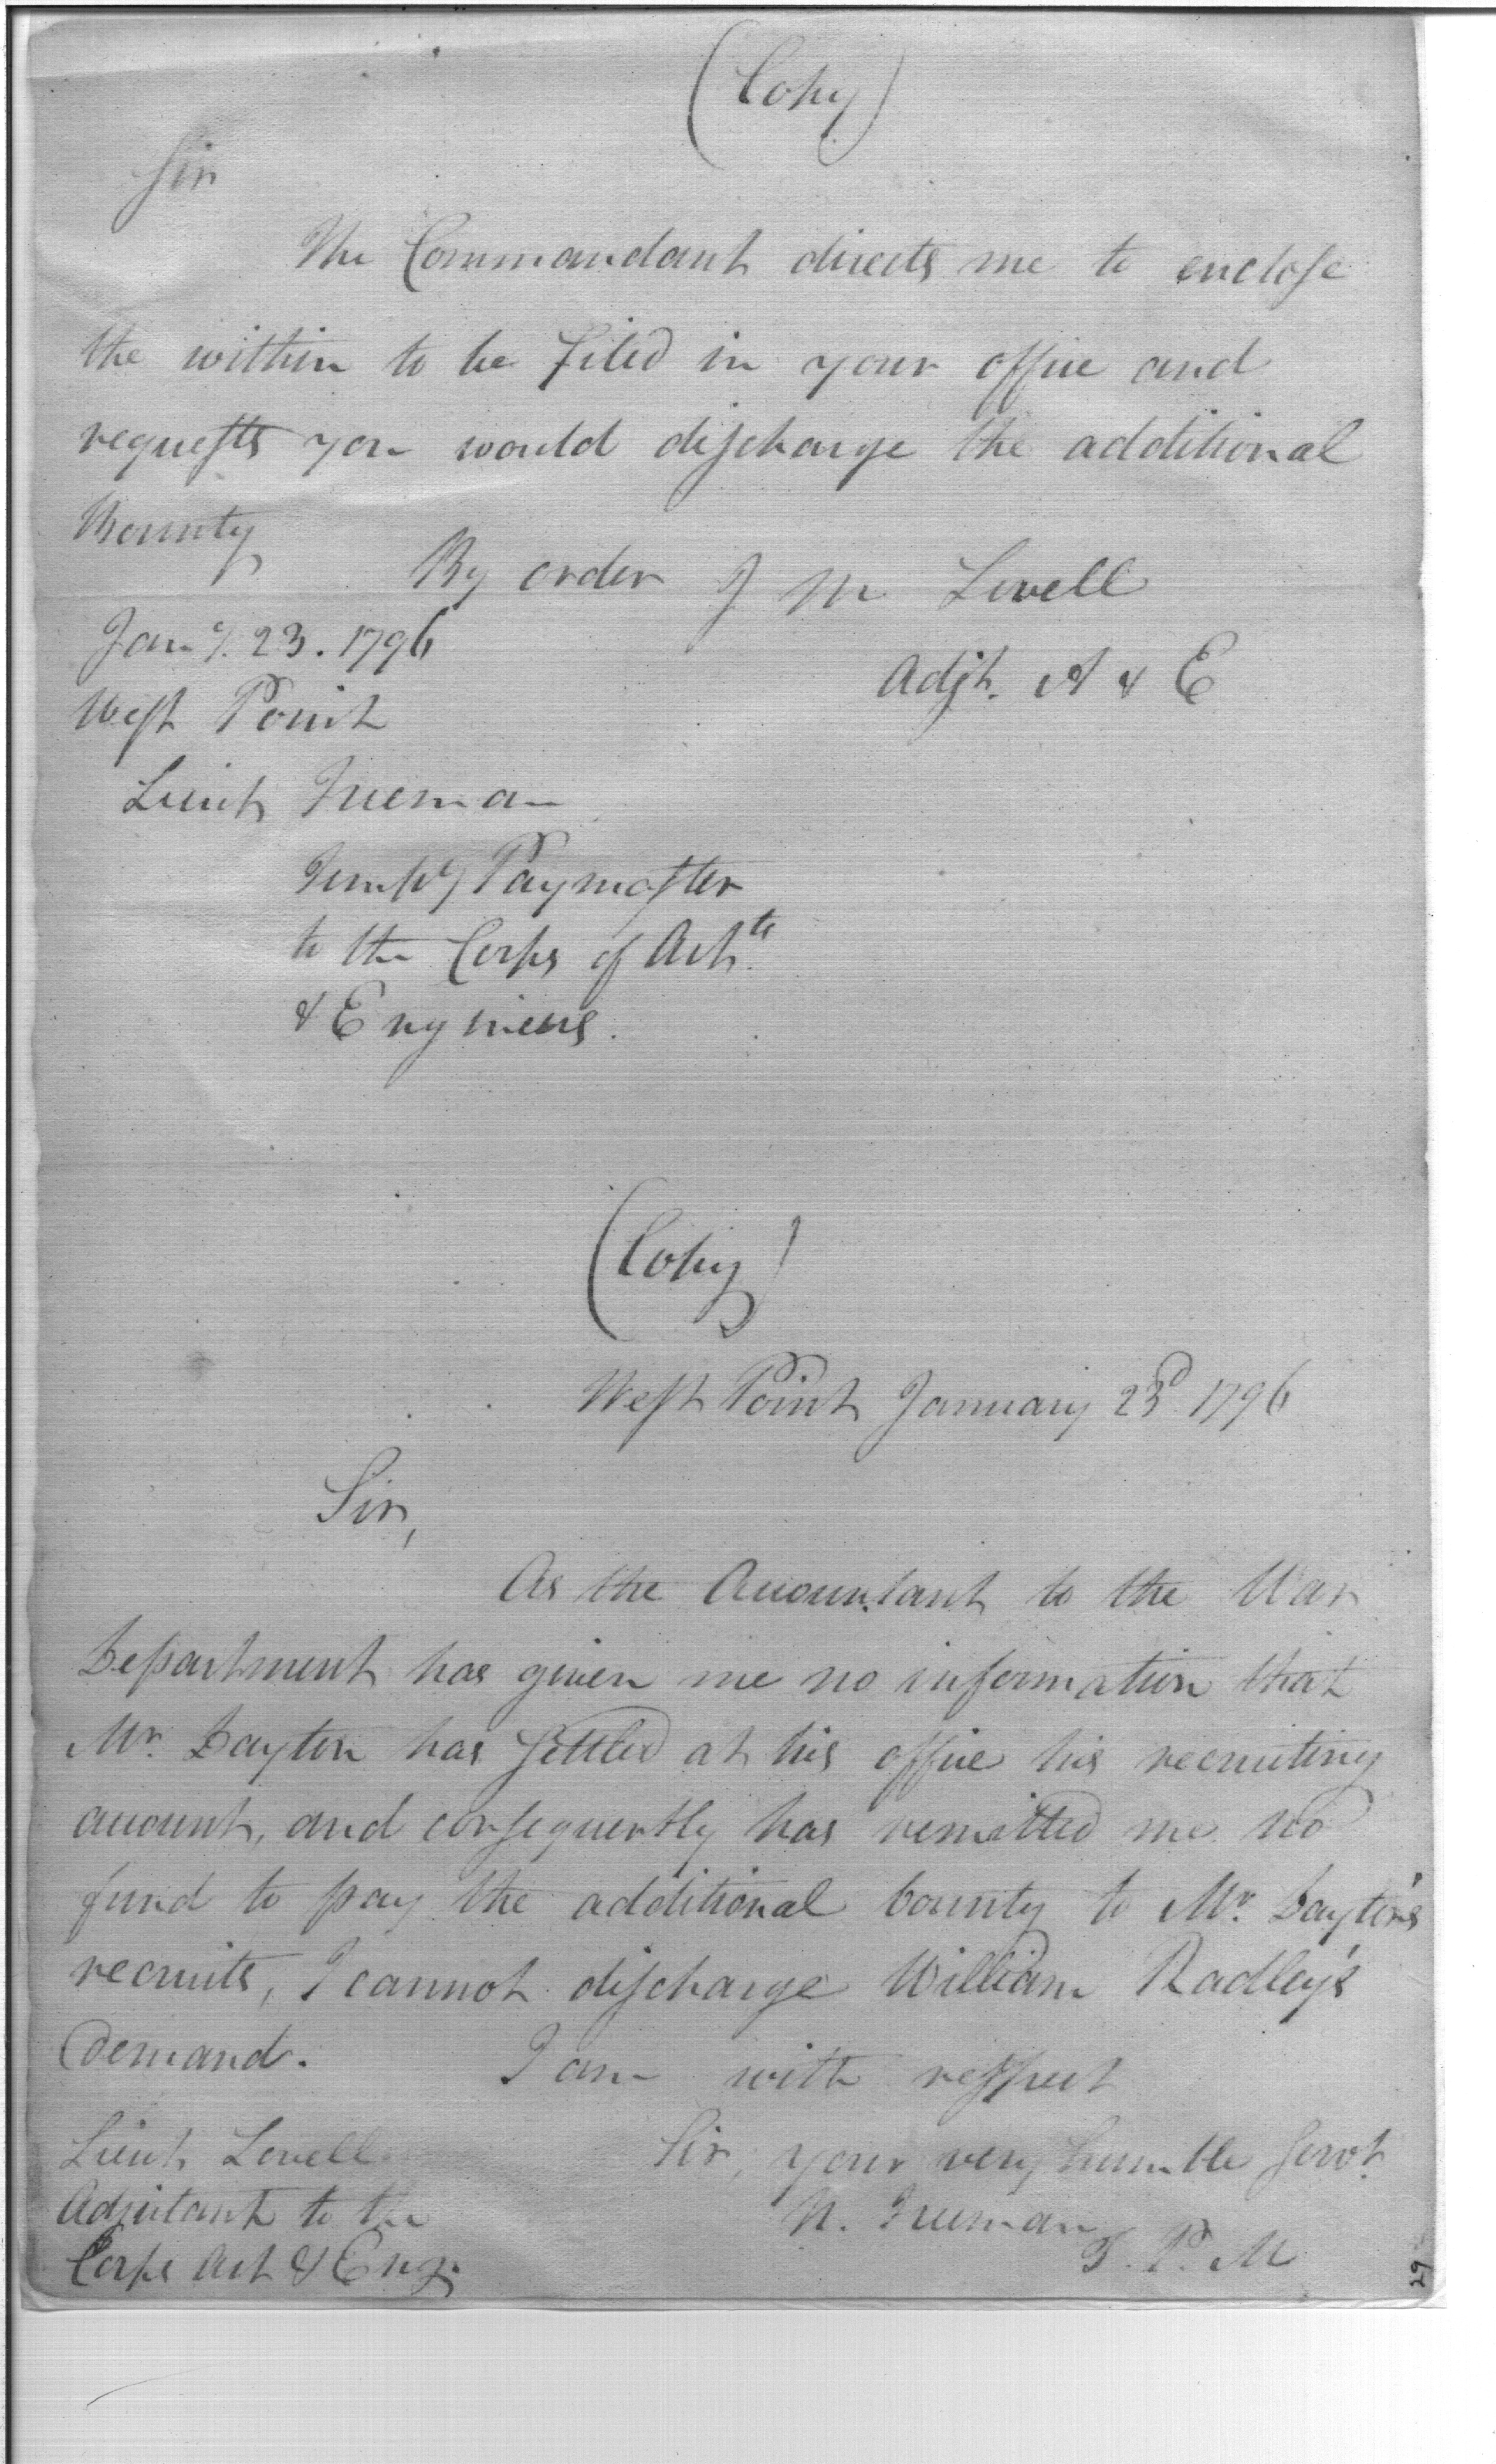 (Copy)
Sir
The Commandant directs me to enclose
the within to be filed in your office and
requests you would discharge the additional
Bounty
By order J M Lovell
Jany. 23. 1796
Adjt. A & E
West Point
Lieut Freeman
Tempy Paymaster
to the Corps of Artts.
& Engineers.
(Copy)
West Point January 23d 1796
Sir,
As the Accountant to the War
Department has given me no information that
Mr. Dayton has settled at his office his recruiting
account, and consequently has remitted me no
fund to pay the additional bounty to Mr. Dayton's
recruits, I cannot discharge William Radley's
Demand.
I am with respect
Sir, your very humble servt.
Lieut Lovell
N. Freeman
Adjutant to the
T. P. M
Corps Art & Eng.
29